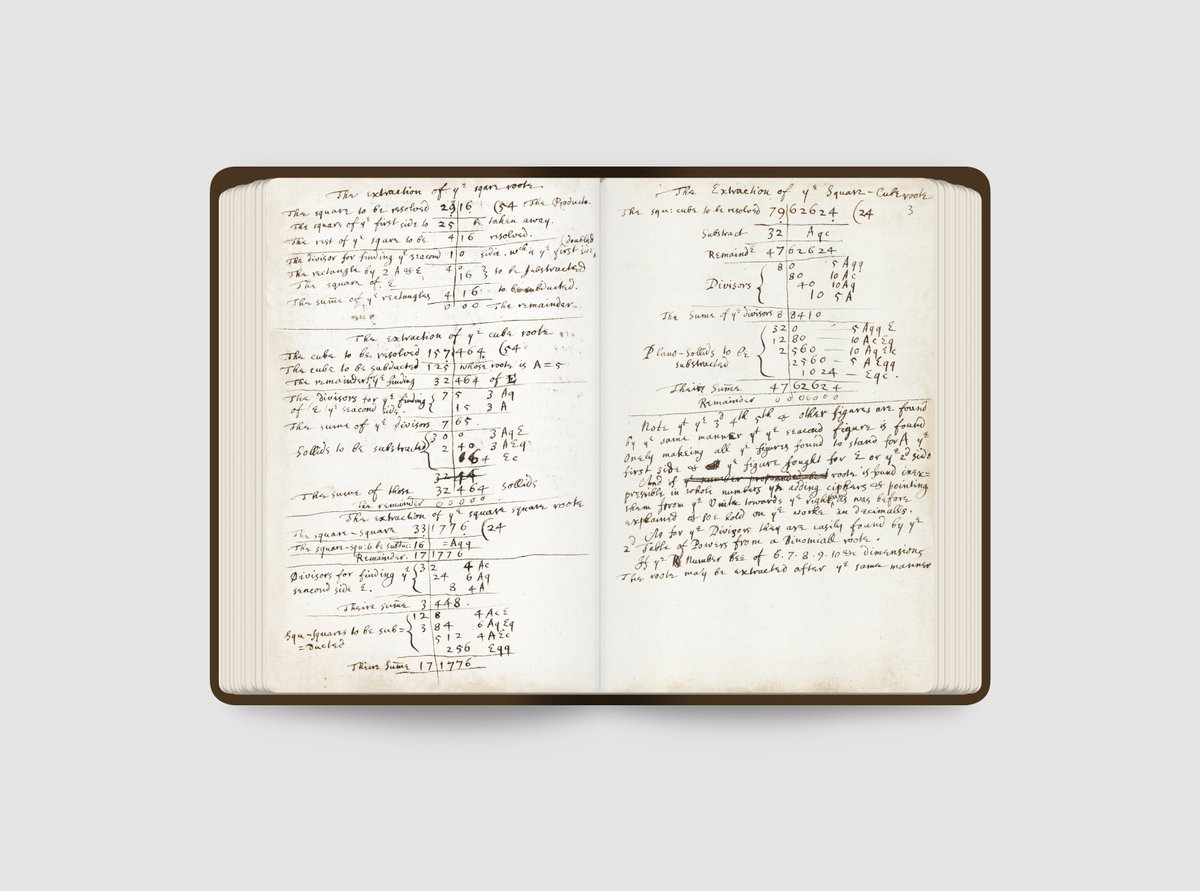 The extraction of yᵉ sqare roote
The square to be resolved 29|16 (54 The Producto.
The square of yᵉ first side to 25 be taken away.
The rest of yᵉ sqare to be 4|16 resolved.
The divisor for finding yᵉ seacond 1|0 side. wᶜʰ is yᵉ first side doubled
The rectangle by 2 A & E 4|0 } to be substracted
The square of E 16
The sume of yᵉ rectangles 4|16 to be subducted.
0|00 The remainder.
The extraction of yᵉ cube roote
The cube to be resolved 157|464 (54
The cube to be subducted 125 whose roote is A = 5
The remainder yᵉ finding 32|464 of E
The divisors for yᵉ finding { 7|5 3 Aq
of E yᵉ seacond side. 15 3 A
The sume of yᵉ divisors 7|65
Sollids to be substracted { 30|0 3 Aq E
2|40 3 A Eq
64 Ec
32 44
The sume of those 32|464 Sollids
The remainder 00000
The extraction of yᵉ square square roote
The square-square 33|1776 (24
The square-squ: to be subduc: 16 = Aqq
Remainder. 17|1776
Divisors for finding yᵉ { 3|2 4 Ac
seacond side E. 24 6 Aq
8 4 A
Theire sume 3|448.
12|8 4 Ac E
Squ-squares to be sub= { 3|84 6 Aq Eq
=ducted 512 4 A Ec
256 Eqq
Their Sume 17|1776
The Extraction of yᵉ Square-Cube roote
3
The squ: cube to be resolved 79|62624 (24
Substract 32 Aqc
Remaindᵉ 47|62624
8|0 5 Aqq
Divisors { 80 10 Ac
40 10 Aq
10 5 A
The Sume of yᵉ divisors 8|8410
32|0 5 Aqq E
Plano-sollids to be { 12|80 10 Ac Eq
substracted 2|560 10 Aq Ec
2560 5 A Eqq
1024 Eqc.
Theire Sume 47|62624
Remainder 0000000
Note yᵗ yᵉ 3ᵈ 4ᵗʰ 5ᵗʰ & other figures are found
by yᵉ same manner yᵗ yᵉ seacond figure is found
Onely makeing all yᵉ figures found to stand for A yᵉ
first side & yᵉ figure sought for E or yᵉ 2ᵈ side
And if yᵉ number propounded bee roote is found inex=
pressible in whole numbers yⁿ adding ciphers & pointing
them from yᵉ Unite towards yᵉ right hand as was before
explained & soe hold on yᵉ worke in decimalls.
2ᵈ As for yᵉ Divisors they are easily found by yᵉ
Table of Powers from a Binomiall roote.
If yᵉ Number bee of 6·7·8·9·10 &c dimensions
The roote may be extracted after yᵉ same manner